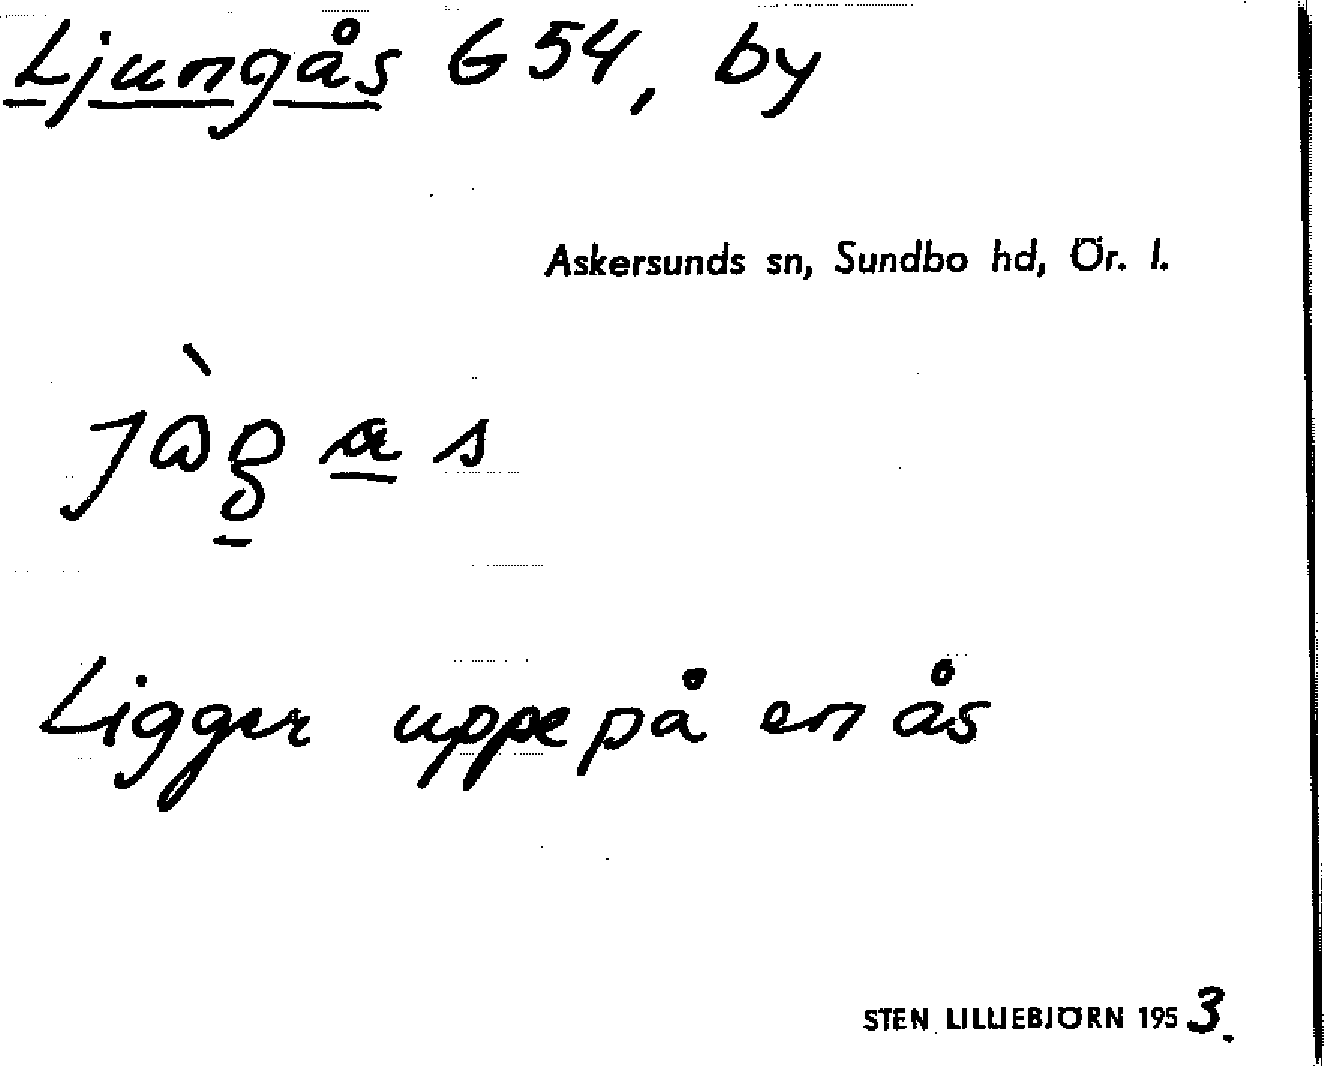 Ljungås G 54, by
Askersunds sn, Sundbo hd, Ör. l.
Ligger uppe på en ås
STEN LILLIEBJÖRN 1953